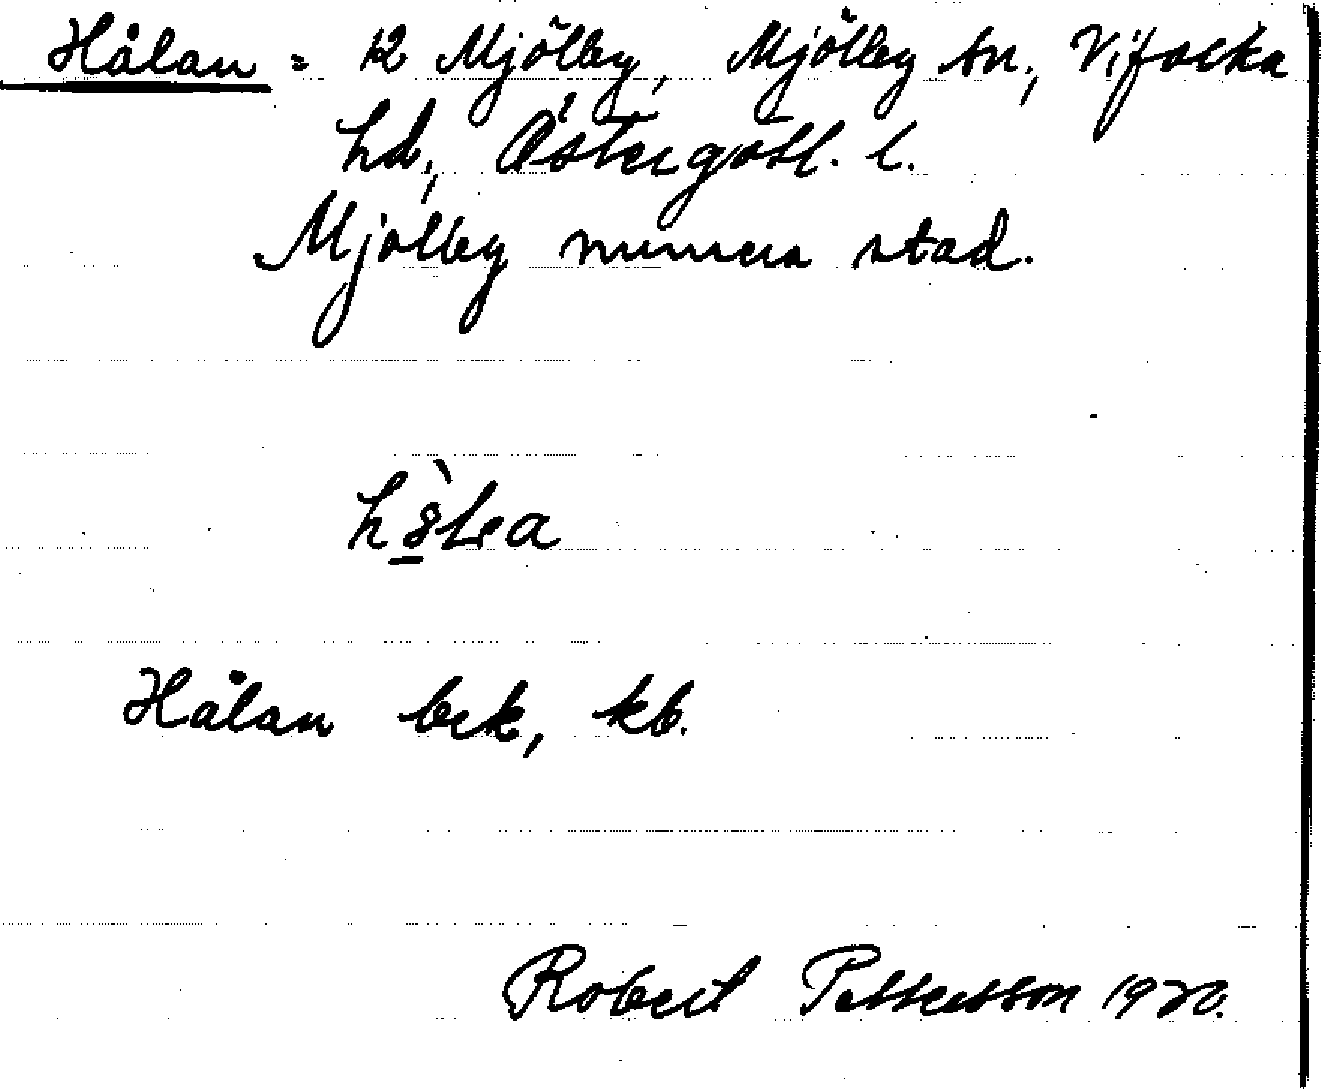 Hålan = 12 Mjölby, Mjölby sn, Vifolka
hd, Östergötl. l.
Mjölby numera stad.
Hålan bck, kb.
Robert Pettersson 1920.